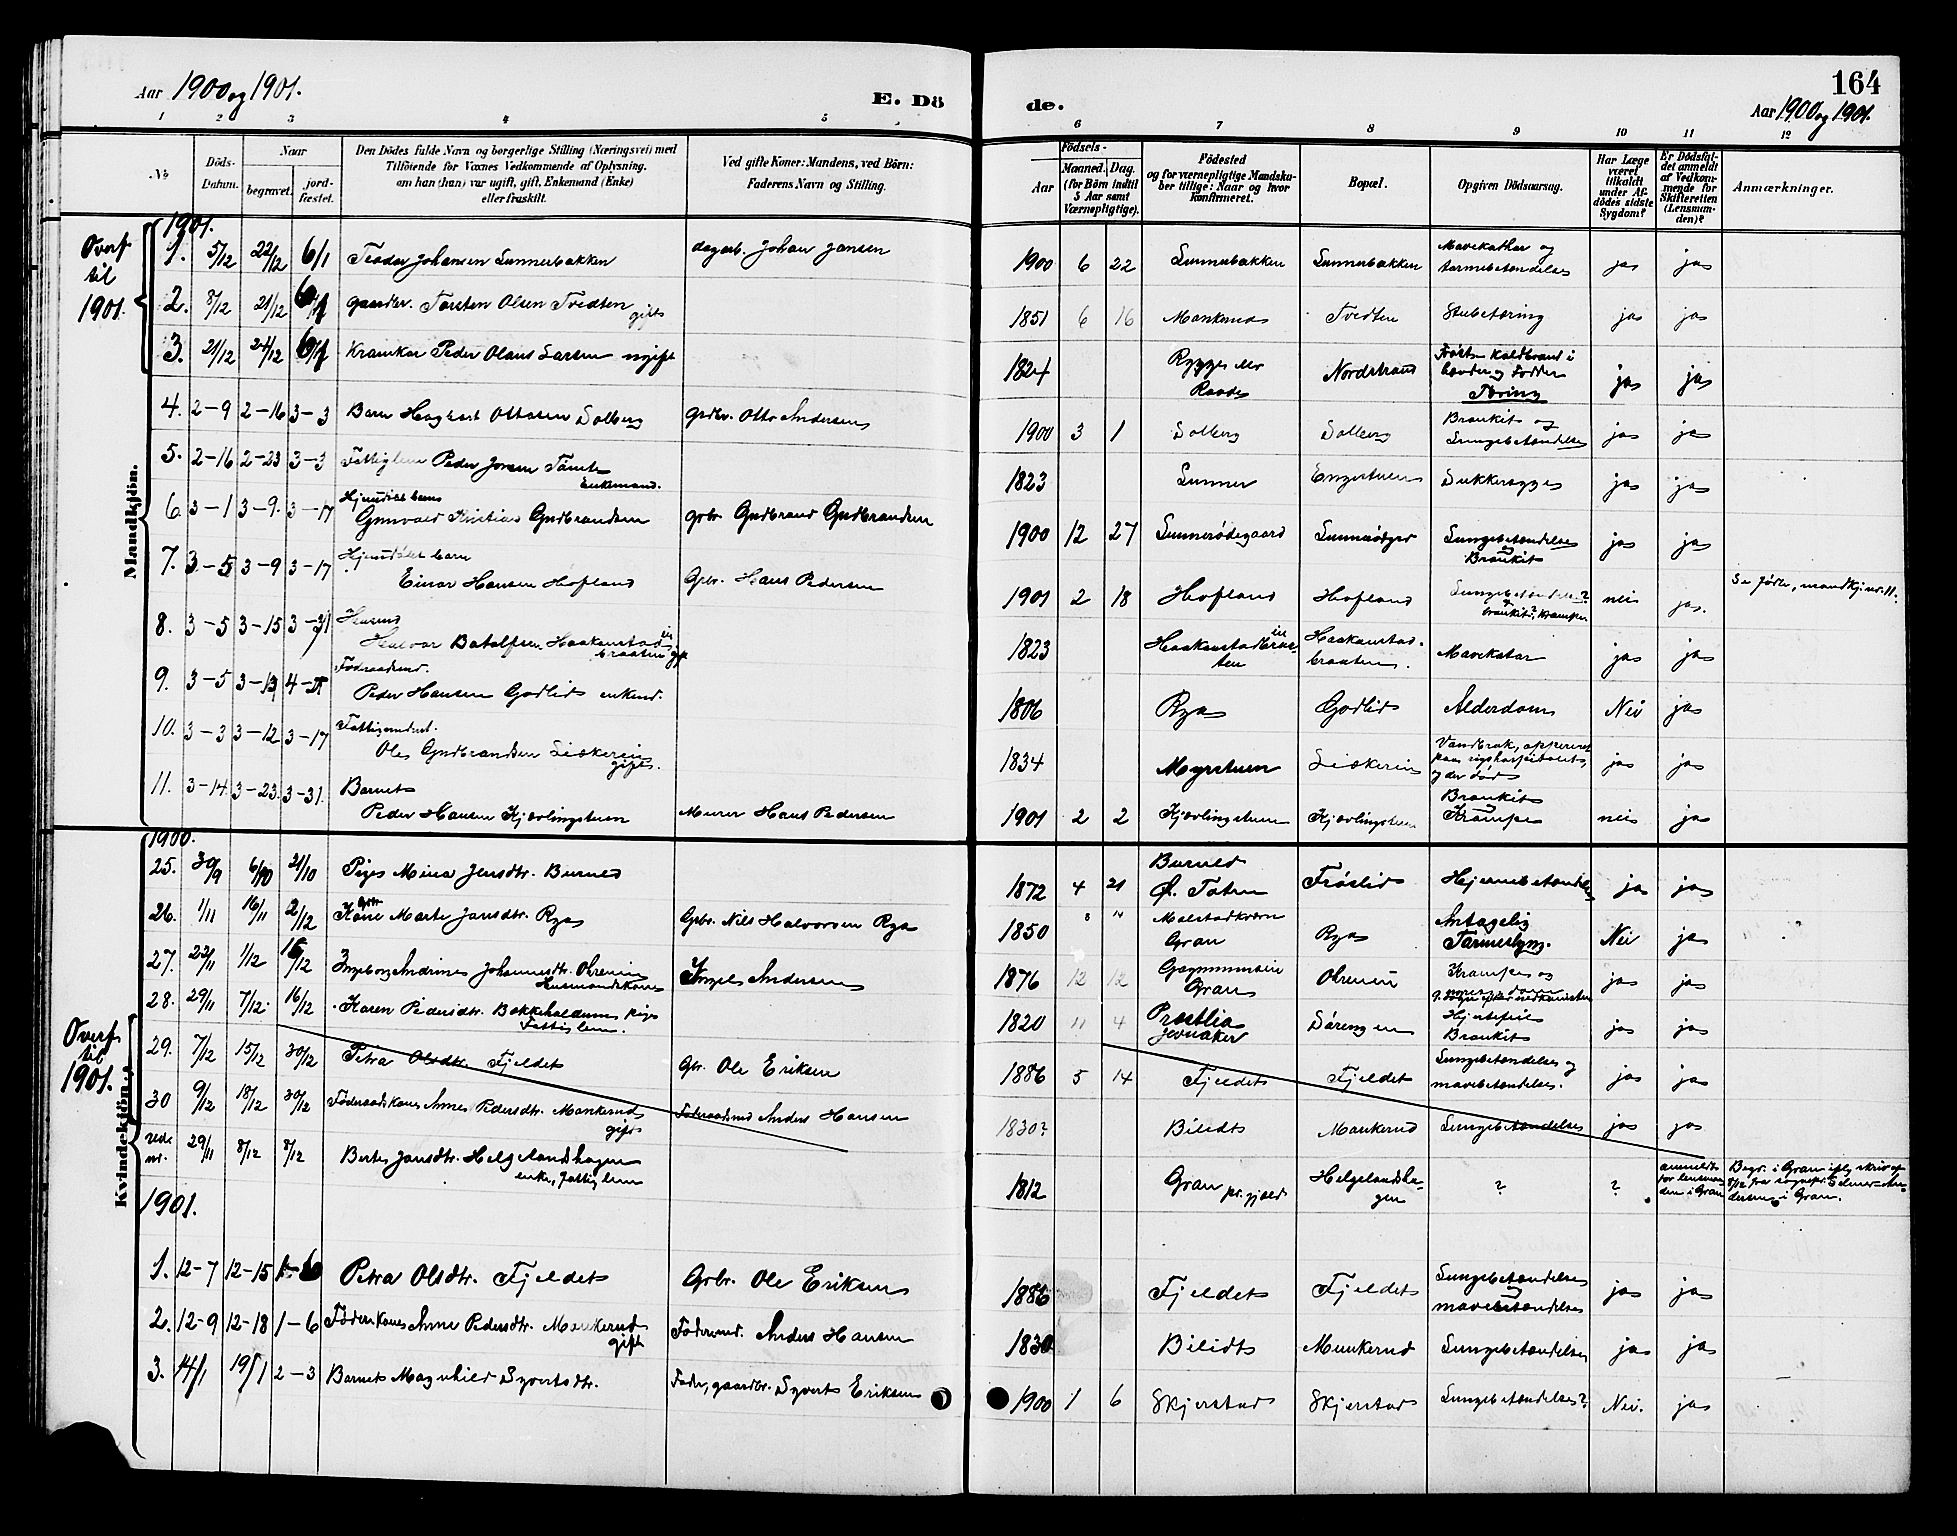 Aar 1900 og 1901.
E. Dö
de.
164
Aar 1900 og 1901.
1 2 3 4 5 6 7 8 9 10 11 12
No
Döds-
Datum.
Naar
begravet.
jord-
fæstet.
Den Dödes fulde Navn og borgerlige Stilling (Næringsvei) med
Tilföiende for Voxnes Vedkommende af Oplysning,
om han (hun) var ugift, gift, Enkemand (Enke)
eller fraskilt.
Ved gifte Koner: Mandens, ved Börn:
Faderens Navn og Stilling.
Födsels-
Aar
Maaned. Dag.
(for Börn indtil
5 Aar samt
Værnepligtige).
Födested
og for værnepligtige Mandska-
ber tillige: Naar og hvor
konfirmeret.
Bopæl.
Opgiven Dödsaarsag.
Har Læge
været
tilkaldt
under Af-
dödes sidste
Sygdom?
Er Dödsfal-
det anmeldt
af Vedkom-
mende for
Skifteretten
(Lensman-
den)?
Anmærkninger.
Mandkjön.
Overf.
til
1901.
1901.
1. 5/12 22/12 6/1 Teodor Johansen Lunnerbakken dagarb. Johan Jansen 1900 6 22 Lunnerbakken Lunnerbakken Mavekathar og
tarmebetændelse ja ja
2. 8/12 21/12 6/1 gaardbr. Torsten Olsen Tvedten
gift 1851 6 16 Mankerud Tvedten Strubetæring ja ja
3. 21/12 24/12 6/1 Kramkar Peder Olaus Larsen ugift 1824 Rygge eller
Raade Nordstrand Frost Koldbrand i
hænder og Fødder
Tæring ja ja
4. 2-9 2-16 3-3 Barn Haghart Ottosen Solberg grdbr. Otto Andersen 1900 3 1 Solberg Solberg Bronkit og
Lungebetændelse ja ja
5. 2-16 2-23 3-3 Fattiglem Peder Jonsen Tømte
Enkemand. 1823 Lunner Engerstuen Sukkersyge ja ja
6. 3-1 3-9. 3-17 Hjemdøbt barn
Gunvald Kristian Gudbrandsen grbr. Gudbrand Gudbrandsen 1900 12 27 Lunnerødegaard Lunnerødgrd Lungebetændelse
og
Bronkit ja ja
7. 3-5 3-9 3-17 Hjemdøbt barn
Einar Hansen Hofland Grbr. Hans Pedersen 1901 2 18 Hofland Hofland Lungebetændelse?
bronkit? Krampe nei ja. Se fødte, mandkj. nr. 11.
8. 3-5 3-15 3-31
Halvor Haakenstad-
braaten gift 1823 Haakenstadbraa-
ten Haakenstad-
braaten. Mavekatar ja ja
9. 3-5 3-13 Føderaadsmd.
Peder Hansen Godlid enkemd. 1806 Rya Godlid Alderdom Nei ja
10. 3-3 3-12 3-17 Fattigundst.
Ole Gudbrandsen
gift. 1834 Myrstuen Vandbrok, opereret
paa rigshospitalet,
og der død ja ja
11. 3-14. 3-23. 3-31. Barnet
Peder Hansen Kjørlingstuen Murer Hans Pedersen 1901 2 2 Kjørlingstuen Kjørlingstuen Bronkit
og
Krampe nei ja
Kvindekjön.
Overf.
til
1901.
1900.
25. 30/9 6/10 21/10 Pige Mina Jensdtr. Burned 1872 4 21 Burned
Ø. Toten Frøslid Hjernebetændelse ja ja
26. 1/11 16/11 2/12 Kone Marte Jansdtr. Rya Grbr. Nils Halvorsen Rya 1850 Molstadkvern
Gran Rya Antagelig
Tarmeslyng. Nei ja
27. 22/11 1/12 16/12 Ingeborg Andrine Johannesdtr. Ohrenien
Husmandskone Andersen 1876 12 12
Gran Ohrenien Krampe og ja ja
28. 29/11 7/12. 16/12 Karen Pedersdtr. Bakkehaldum pige
Fattiglem. 1820 11 4 Prestlia
Jevnaker Sørengen Hjertefeil
Bronkit ja ja
29. 7/12 15/12 30/12 Petra Olsdtr. Fjeldet Gbr. Ole Eriksen 1886 5 14 Fjeldet Fjeldet Lungebetændelse og
mavebetændelse. ja ja
30 9/12 18/12 30/12 Føderaadskone Anne Pedersdtr. Mankerud
gift Føderaadsmd Anders Hansen 1830? Bilidt Mankerud Lungebetændelse ja ja
uden
nr. 29/11 8/12 8/12 Berte Jansdtr. Helgelandhagen
enke, fattiglem 1812 Gran pr. gjæld Helgelandsha-
gen ? ? anmeldt
for lensman-
den i Gran Begr. i Gran iflg skriv af
8/12 fra sognepr.
i Gran.
1901.
1. 12-7 12-15 1-6 Petra Olsdtr. Fjeldet Grbr. Ole Eriksen 1886 Fjeldet Fjeldet Lungebetændelse
og
mavebetændelse ja ja
2. 12-9 12-18 1-6 Føderskone Anne Pedersdtr. Mankerud
gift Fødermd. Anders Hansen 1830 Bilidt Mankerud Lungebetændelse ja ja
3. 14/1 19/1 2-3 Barnet Magnhild Syvertsdtr. Fader, gaardbr. Syvert Eriksen 1900 1 6 Skjerstad Skjerstad Lungebetændelse? Nei. ja